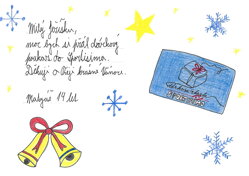 Milý Ježíšku,
moc bych si přál dárkový
poukaz do Sportisimo.
Děkuji a Přeji krásné Vánoce.
Matyáš 14 let